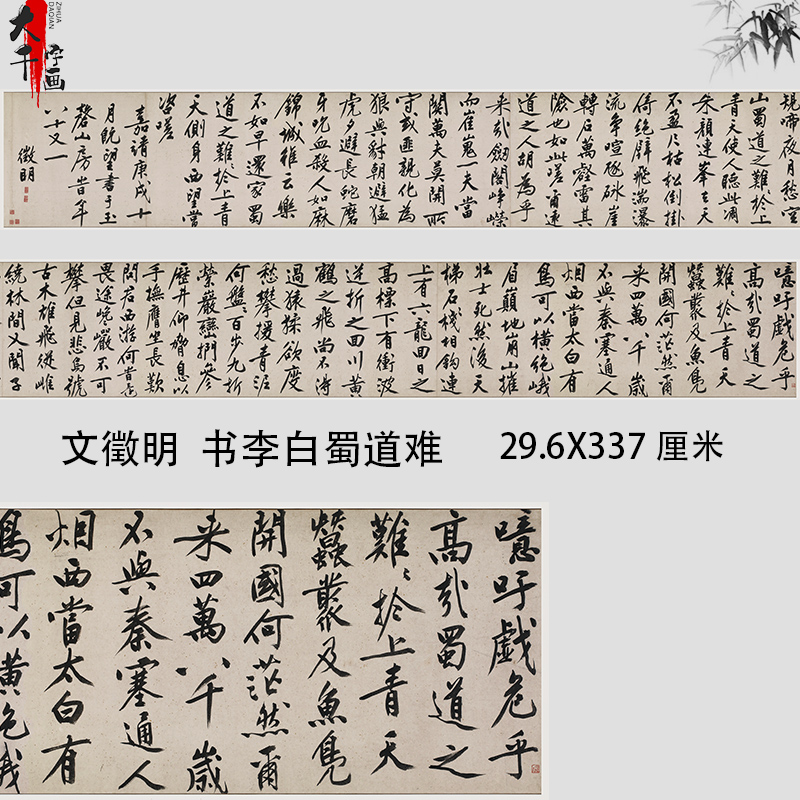 大千字画
ZIHUA
DAQIAN
規啼夜月愁空
山蜀道之難於上
青天使人聽此凋
朱顏連峯去天
不盈尺枯松倒掛
倚絕壁飛湍瀑
流爭喧豗砅崖
轉石萬壑雷其
險也如此嗟爾遠
道之人胡為乎
來哉劒閣崢嶸
而崔嵬一夫當
關萬夫莫開所
守或匪親化為
狼與豺朝避猛
虎夕避長蛇磨
牙吮血殺人如麻
錦城雖云樂
不如早還家蜀
道之難於上青
天側身西望當
咨嗟
嘉靖庚戌十
月既望書于玉
磬山房時年
八十又一
徵明
噫吁戲危乎
高哉蜀道之
難〻於上青天
蠶叢及魚鳧
開國何茫然爾
來四萬八千歲
不與秦塞通人
烟西當太白有
鳥可以橫絕峨
眉巔地崩山摧
壯士死然後天
梯石棧相鉤連
上有六龍回日之
高標下有衝波
逆折之回川黃
鶴之飛尚不得
過猿猱欲度
愁攀援青泥
何盤〻百步九折
縈巖巒捫參
歷井仰脅息以
手撫膺坐長歎
問君西游何當還
畏途巉巖不可
攀但見悲鳥號
古木雄飛從雌
繞林間又聞子
文徵明 书李白蜀道难 29.6X337 厘米
噫吁戲危乎
高哉蜀道之
難〻於上青天
蠶叢及魚鳧
開國何茫然爾
來四萬八千歲
不與秦塞通人
烟西當太白有
鳥可以橫絕峨